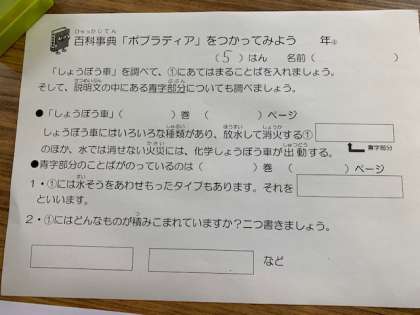 ひゃっかじてん
百科事典「ポプラディア」をつかってみよう　年②
（ 5 ）はん　名前（　　　　　）
「しょうぼう車」を調べて、①にあてはまることばを入れましょう。
せつめいぶん　ぶぶん
そして、説明文の中にある青字部分についても調べましょう。
●「しょうぼう車」（　　　）巻（　　　）ページ
しゅるい　ほうすい　しょうか
しょうぼう車にはいろいろな種類があり、放水して消火する①
かさい　しゅつどう
のほか、水では消せない火災には、化学しょうぼう車が出動する。
青字部分
●青字部分のことばがのっているのは（　　　）巻（　　　）ページ
すい
1・①には水そうをあわせもったタイプもあります。それを
といいます。
つ
2・①にはどんなものが積みこまれていますか？二つ書きましょう。
など